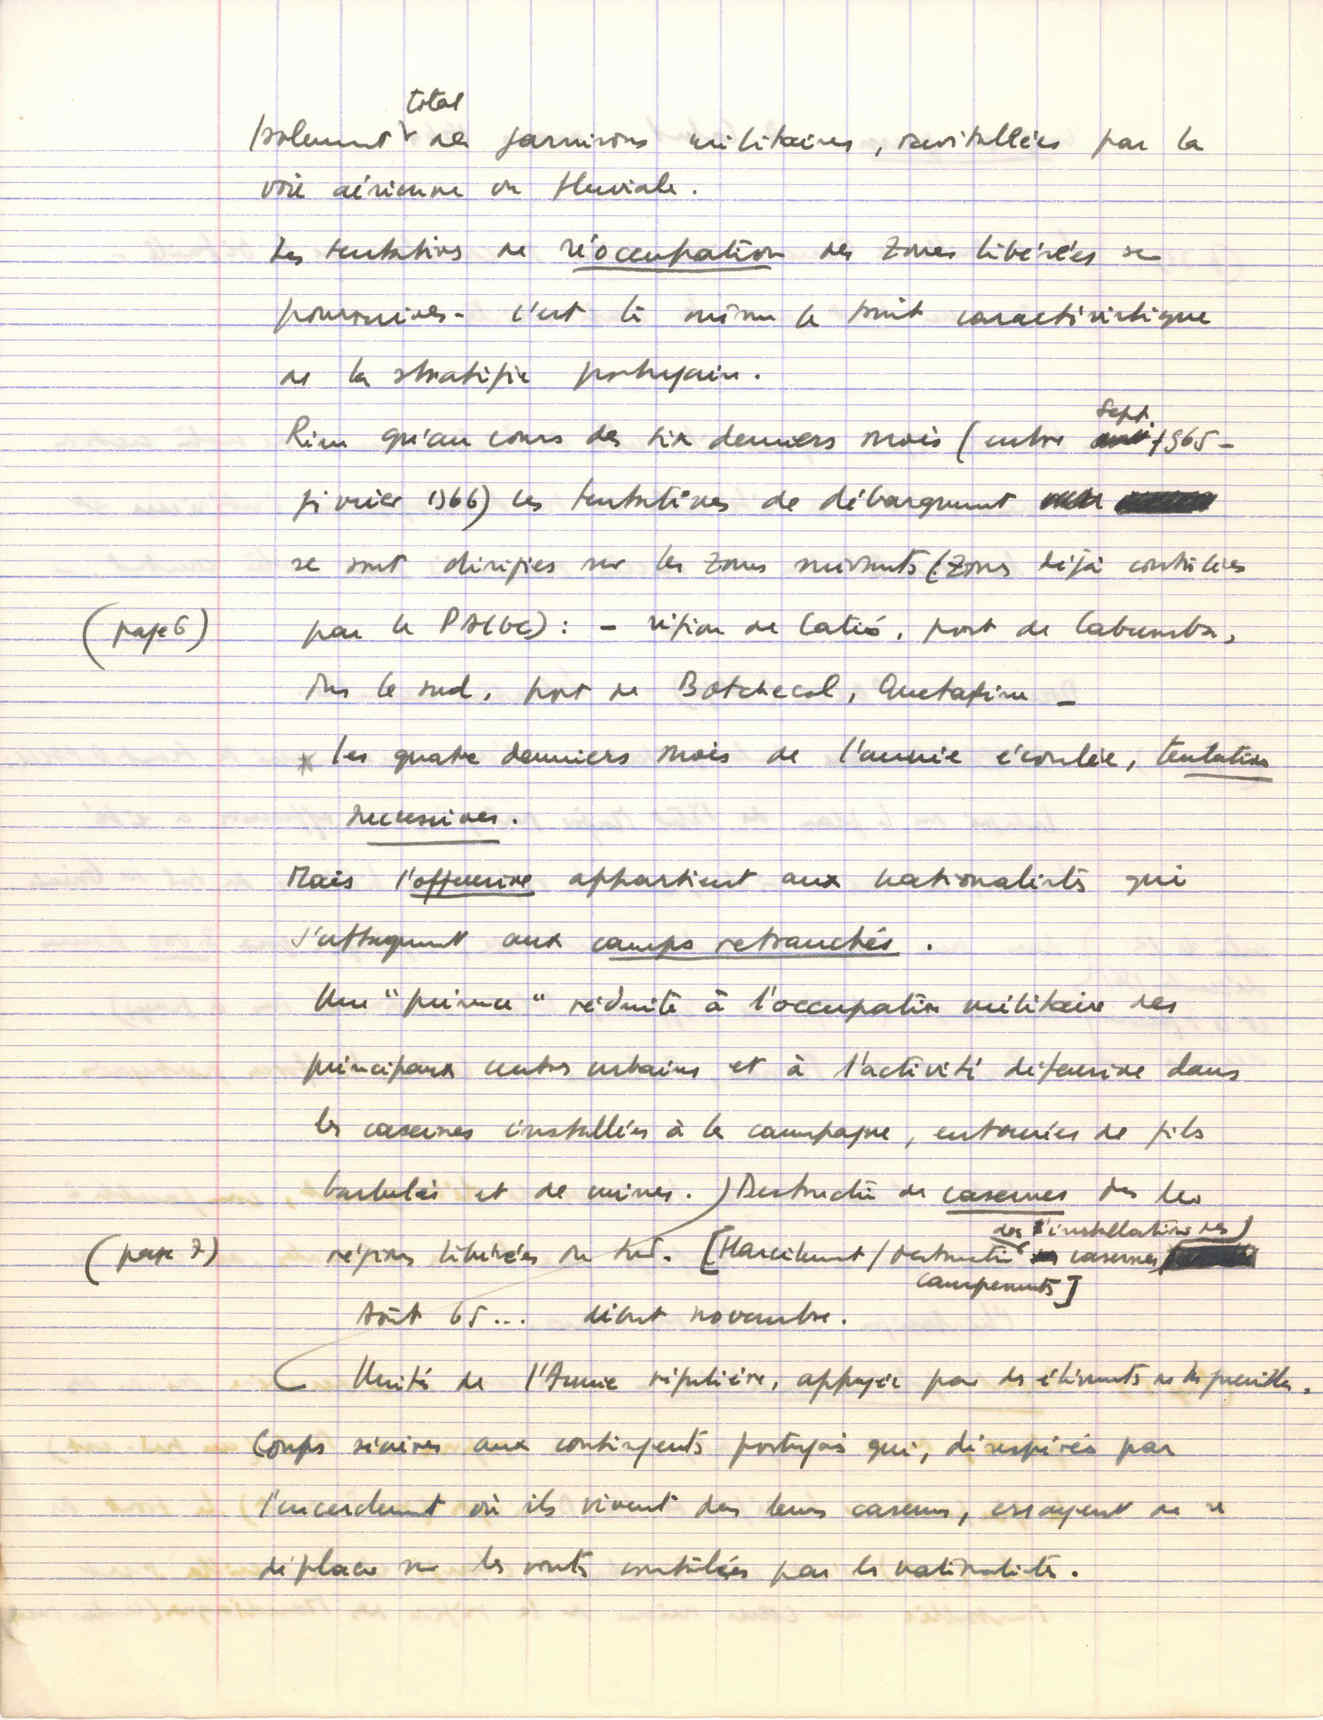 total
Isolement des garnisons militaires, ravitaillées par la
voie aérienne ou fluviale.
Les tentatives de réoccupation des zones libérées se
poursuivent. C'est là même le trait caractéristique
de la stratégie portugaise.
Sept.
Rien qu'au cours des six derniers mois (entre 1965 -
février 1966) les tentatives de débarquement
se sont dirigées sur les zones suivantes (zones déjà contrôlées
(page 6) par le PAIGC) : - région de Catió, port de Cabumba,
dans le sud, port de Botchecol, Quetafine -
* les quatre derniers mois de l'année écoulée, tentatives
successives.
Mais l'offensive appartient aux nationalistes qui
s'attaquent aux camps retranchés.
Une "présence" réduite à l'occupation militaire des
principaux centres urbains et à l'activité défensive dans
les casernes installées à la campagne, entourées de fils
barbelés et de mines. ) Destruction de casernes dans les
des l'installation des)
(page 7) régions libérées du sud. [Harcèlement / destruction casernes
campements]
Août 65... début novembre.
Unités de l'Armée régulière, appuyée par des éléments de la guérilla.
Coups sévères aux contingents portugais qui, désespérés par
l'encerclement où ils vivent dans leurs casernes, essayent de se
déplacer sur les routes contrôlées par les nationalistes.